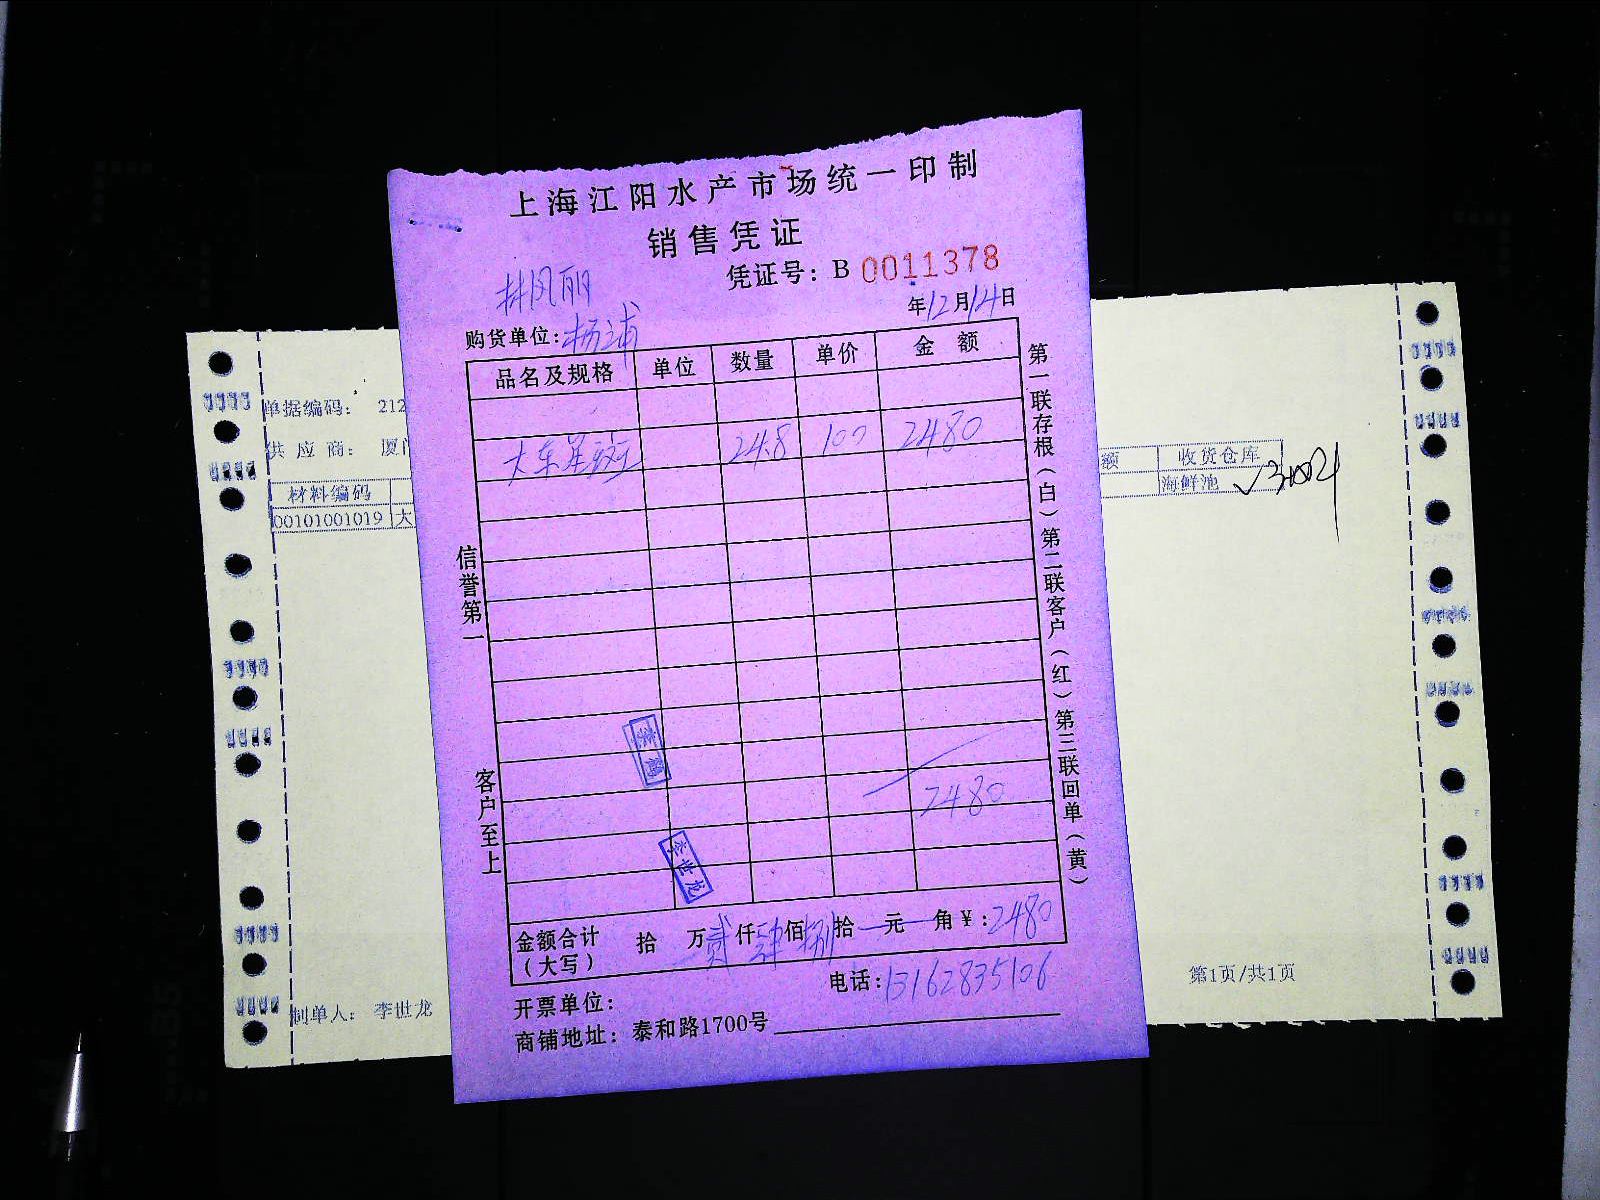 上海江阳水产市场统一印制
销售凭证
凭证号：B 0011378
林凤丽
年12月14日
购货单位：杨浦
品名及规格 单位 数量 单价 金额
大东星斑 24.8 100 2480
2480
金额合计（大写） 拾 万贰仟肆佰捌拾 元 角¥：2480
电话：13162835106
开票单位：
商铺地址：泰和路1700号
信誉第一
客户至上
第一联存根（白）第二联客户（红）第三联回单（黄）
李世龙
单据编码： 212
供应商： 厦门
材料编码
00101001019 大
额 收货仓库
海鲜池
制单人： 李世龙
第1页/共1页